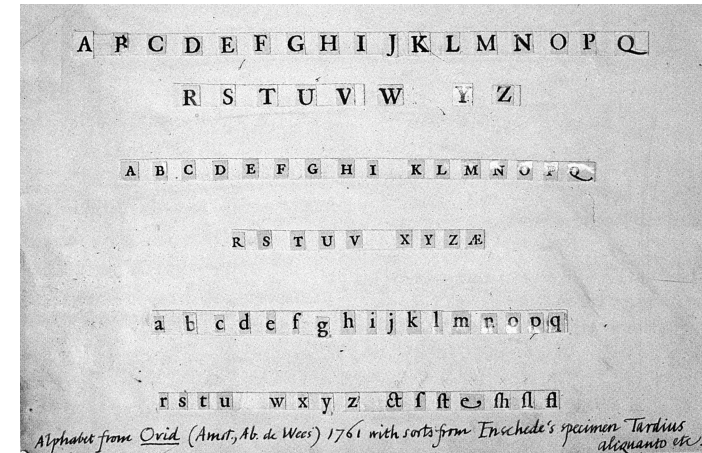 A B C D E F G H I J K L M N O P Q
R S T U V W Y Z
A B C D E F G H I K L M N O P Q
R S T U V X Y Z Æ
a b c d e f g h i j k l m n o p q
r s t u w x y z & ſ ſt e ſh ſl fl
Alphabet from Ovid (Amst., Ab. de Wees) 1761 with sorts from Enschede's specimen Tardius
aliquanto etc.